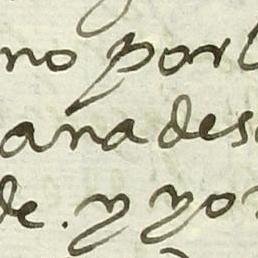 no por
ana des
de. y yo